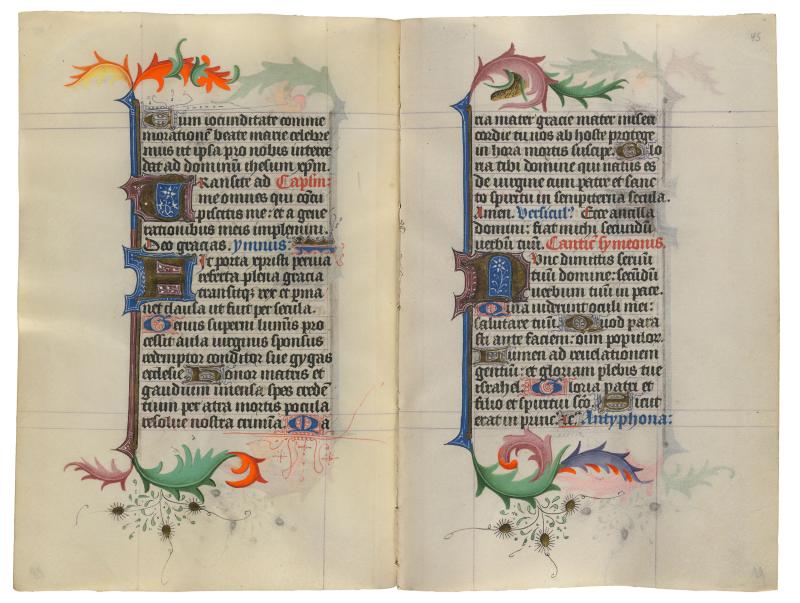 Cum iocunditate comme
morationē beate marie celebre
mus ut ipsa pro nobis interce
dat ad dominū ihesum xp̄m.
Transite ad Capłm:
me omnes qui cōcu
piscitis me: et a gene
rationibus meis implemini.
Deo gracias. ymnus:
Fit porta xpristi pervia
referta plena gracia
transitqȝ rex et pma
net clausa ut fuit per secula.
Genus superni luminis pro
cessit aula virginis sponsus
redemptor conditor sue gygas
ecclesie Honor matris et
gaudium imensa spes credē
tium per atra mortis pocula
resolve nostra crimīa. Ma
45
ria mater gracie mater miseri
cordie tu nos ab hoste protege
in hora mortis suscipe. Glo
ria tibi domine qui natus es
de virgine cum patre et sanc
to spiritu in sempiterna secula.
Amen. Versicul⁹ Ecce ancilla
domini: fiat michi secundū
verbum tuū. Canticū symeonis.
Nunc dimittis servū
tuū domine: secūdū
verbum tuū in pace.
Quia viderunt oculi mei:
salutare tuū. Quod para
sti ante faciem: oīm populorꝝ.
Lumen ad revelationem
gentiū: et gloriam plebis tue
israhel. Gloria patri et
filio et spiritui scō. Sicut
erat in princ. ꝛc. Antyphona: